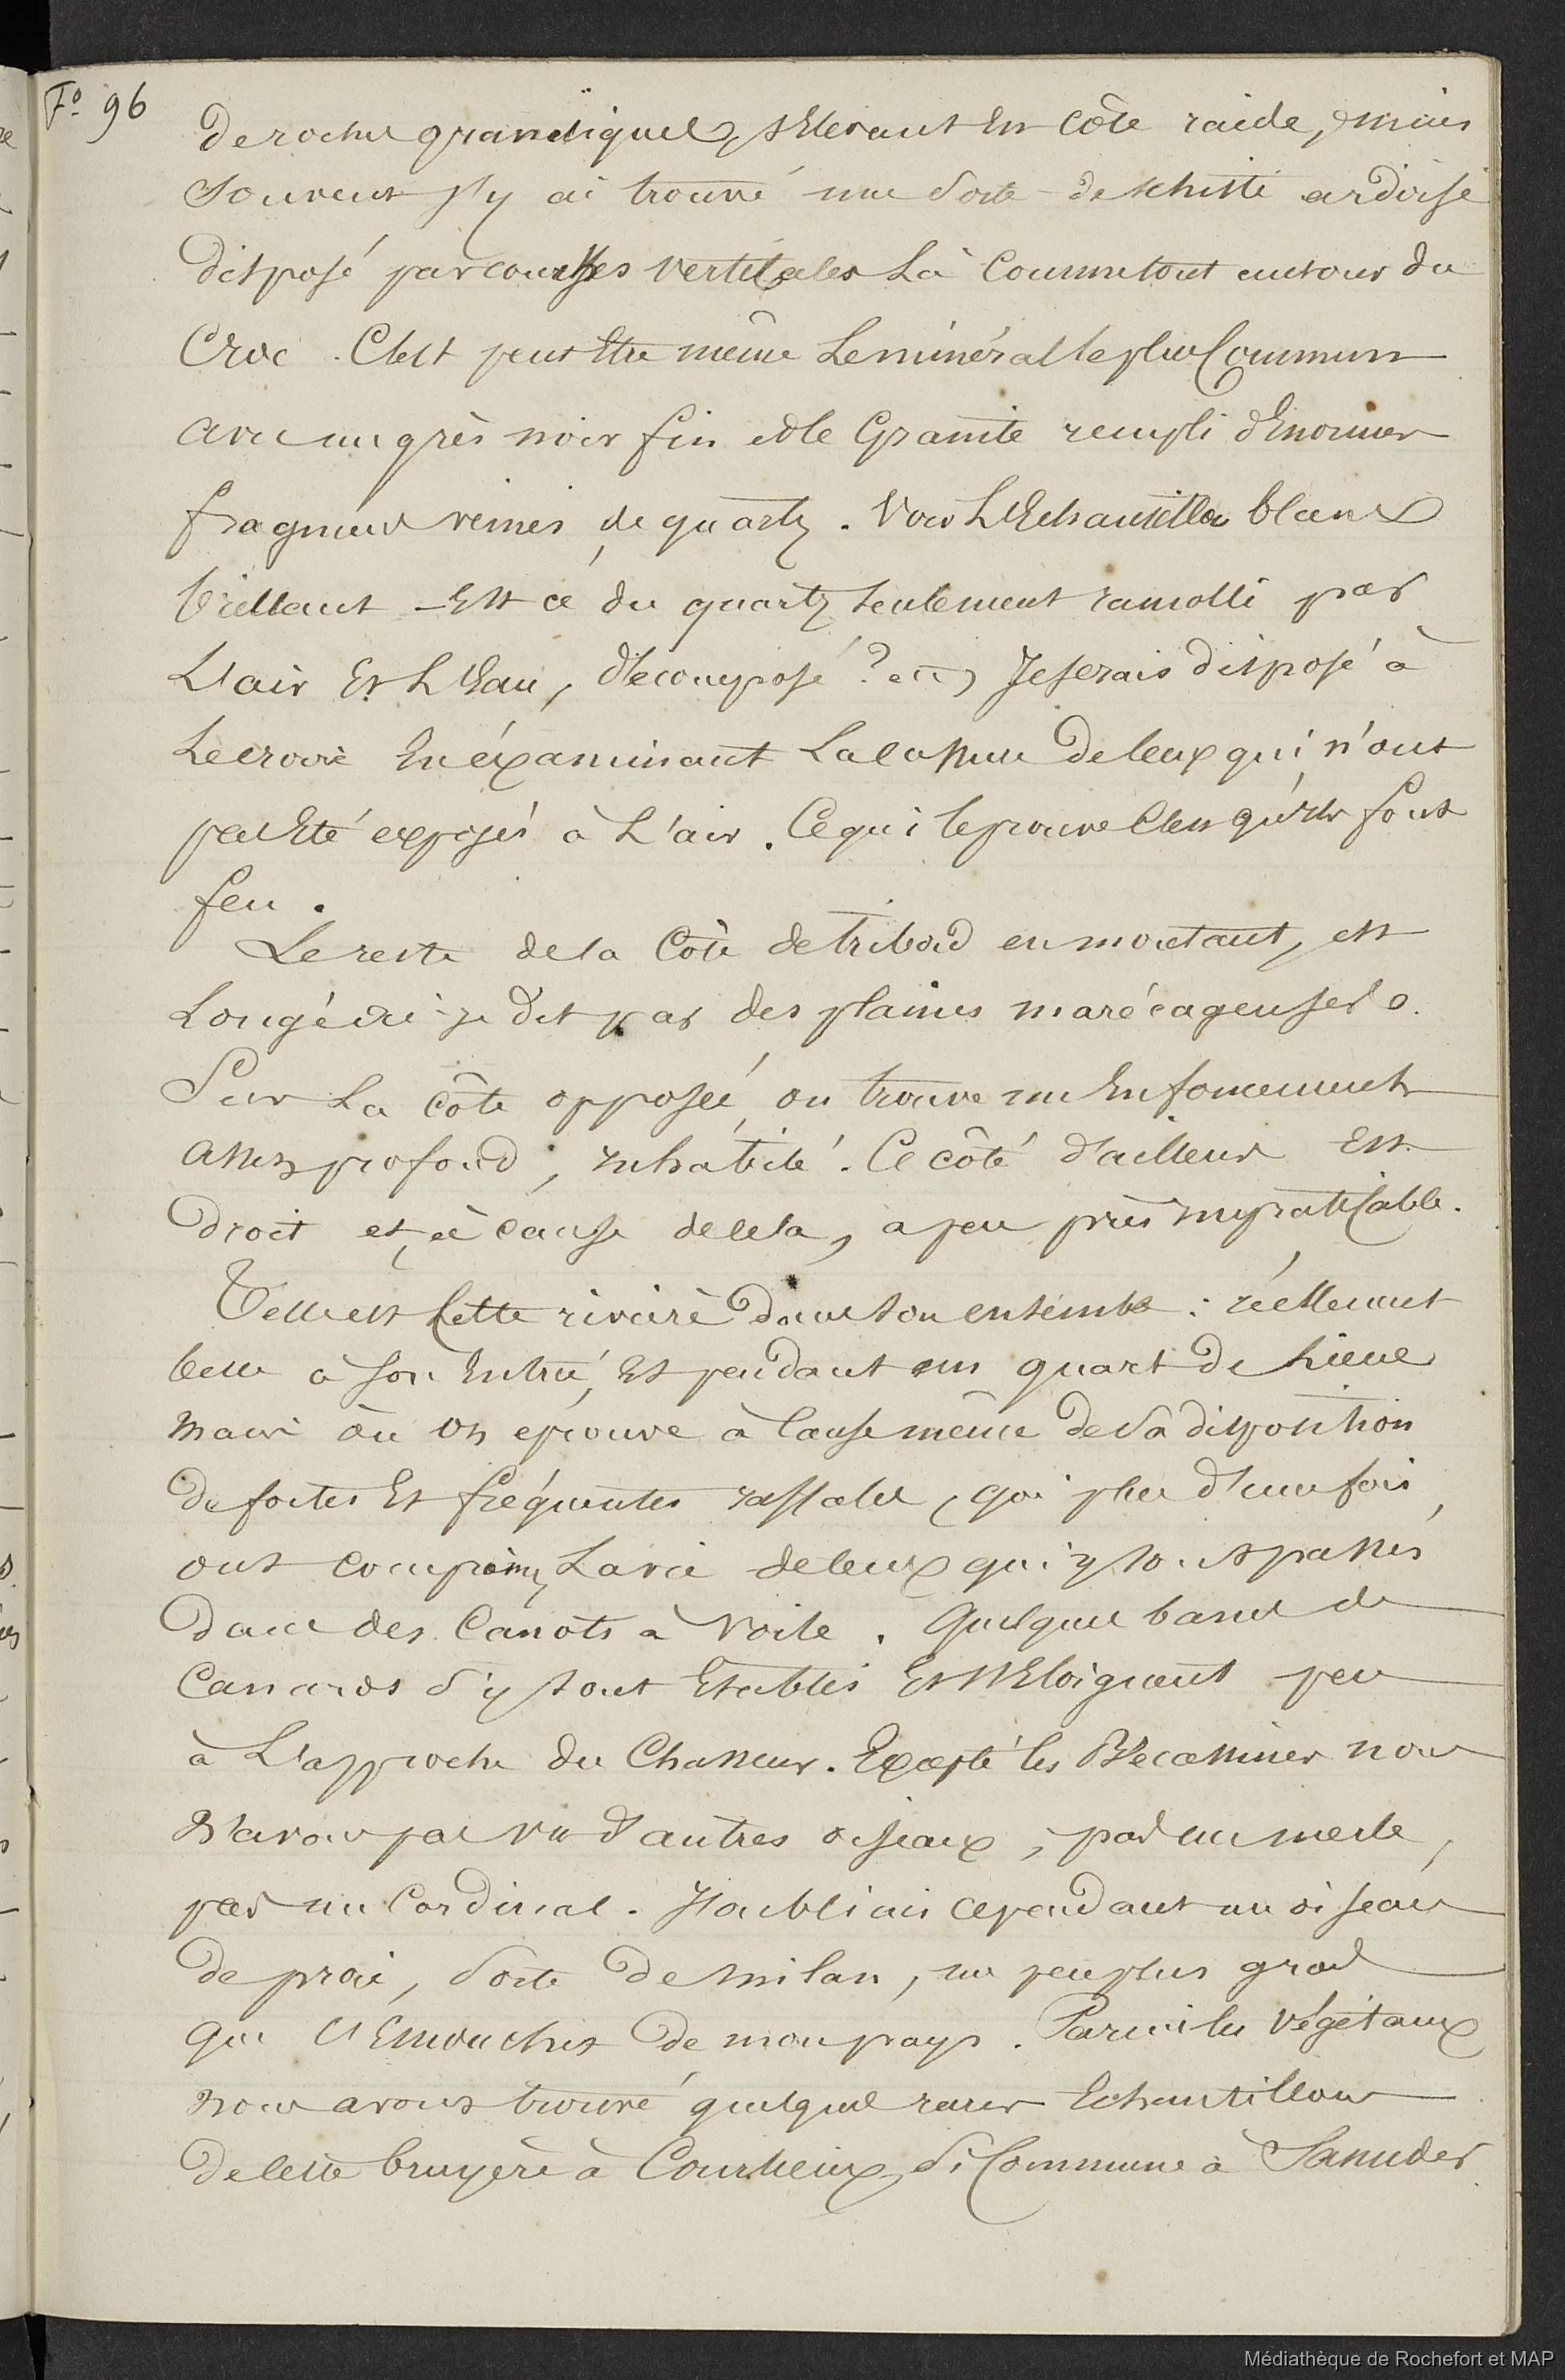 Fo 96
de roches granitiques, s'élevant en côte raide, mais
souvent j'y ai trouvé une sorte de schiste ardoisé
disposé par couches verticales là comme tout autour du
Croc. C'est peut être même le minéral le plus commun
avec un grès noir fin et le Granite rempli d'énormes
fragments veinés de quartz. Voir l'Echantillon blanc
brillant – Est ce du quartz seulement ramolli par
L'air Et L'Eau, décomposé? Je serais disposé à
Le croire En éxaminant La cassure de ceux qui n'ont
pas Eté exposés à L'air. Ce qui le prouve C'est qu'ils font
feu.
Le reste de la Côte de tribord en montant, est
Longé ai-je dit par des plaines marécageuses.
Sur La côte opposée, on trouve un Enfoncement
assez profond, inhabité. Ce côté d'ailleurs Est
Droit et, à cause de cela, a peu près impraticable.
Telle est Cette rivière dans son ensemble: réellement
belle à son Entrée, Et pendant un quart de Lieue
mais où on éprouve à Cause même de sa disposition
de fortes Et fréquentes raffales, qui plus d'une fois
ont compromis La vie de ceux qui y sont passés
dans des Canots à Voile. Quelques bandes de
Canards s'y sont Etablis Et s'Eloignent peu
à L'approche du Chasseur. Excepté les Bécassines nous
n'avons pas vu d'autres oiseaux, pas un merle,
pas un Cardinal. J'oubliais cependant un oiseau
de proie, sorte de milan, un peu plus grand
que L'Emouchet de mon pays. Parmi les Végétaux
nous avons trouvé quelques rares Echantillons
de cette bruyère à si Commune à
Médiathèque de Rochefort et MAP